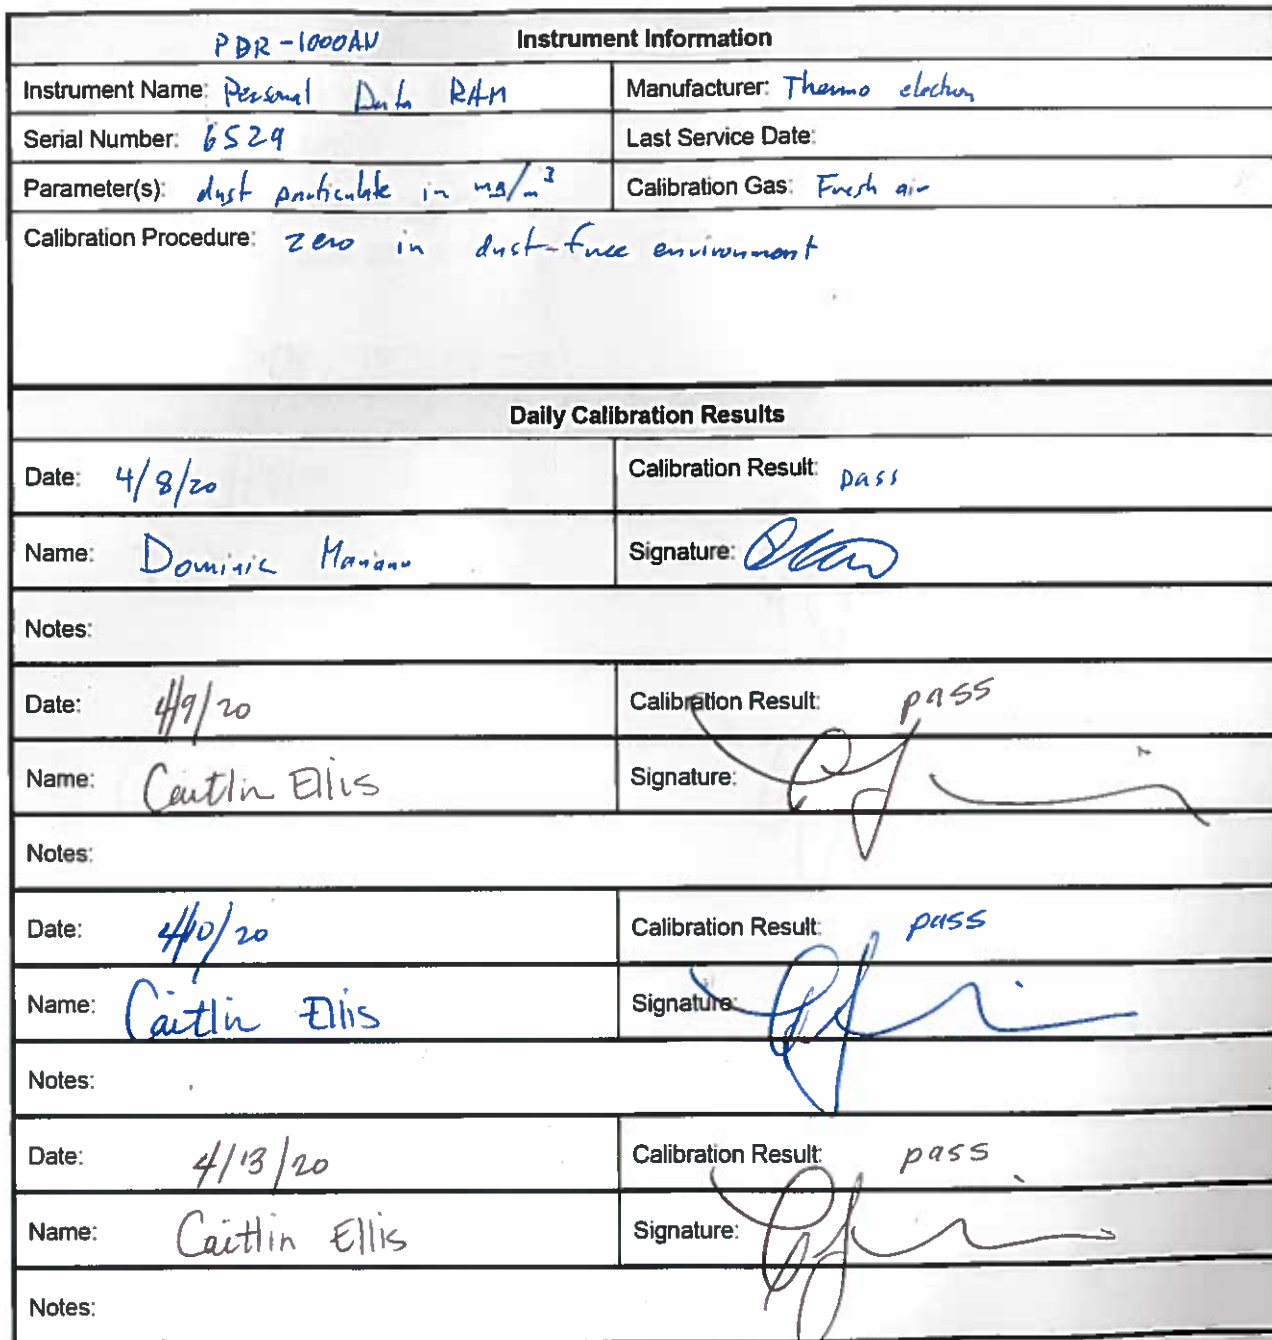 PDR-1000AN Instrument Information
Instrument Name: Personal Data RAM Manufacturer: Thermo electron
Serial Number: 6529 Last Service Date:
Parameter(s): dust particulate in mg/m³ Calibration Gas: Fresh air
Calibration Procedure: zero in dust-free environment
Daily Calibration Results
Date: 4/8/20 Calibration Result: pass
Name: Dominic Mariano Signature:
Notes:
Date: 4/9/20 Calibration Result: pass
Name: Caitlin Ellis Signature:
Notes:
Date: 4/10/20 Calibration Result: pass
Name: Caitlin Ellis Signature:
Notes:
Date: 4/13/20 Calibration Result: pass
Name: Caitlin Ellis Signature:
Notes: